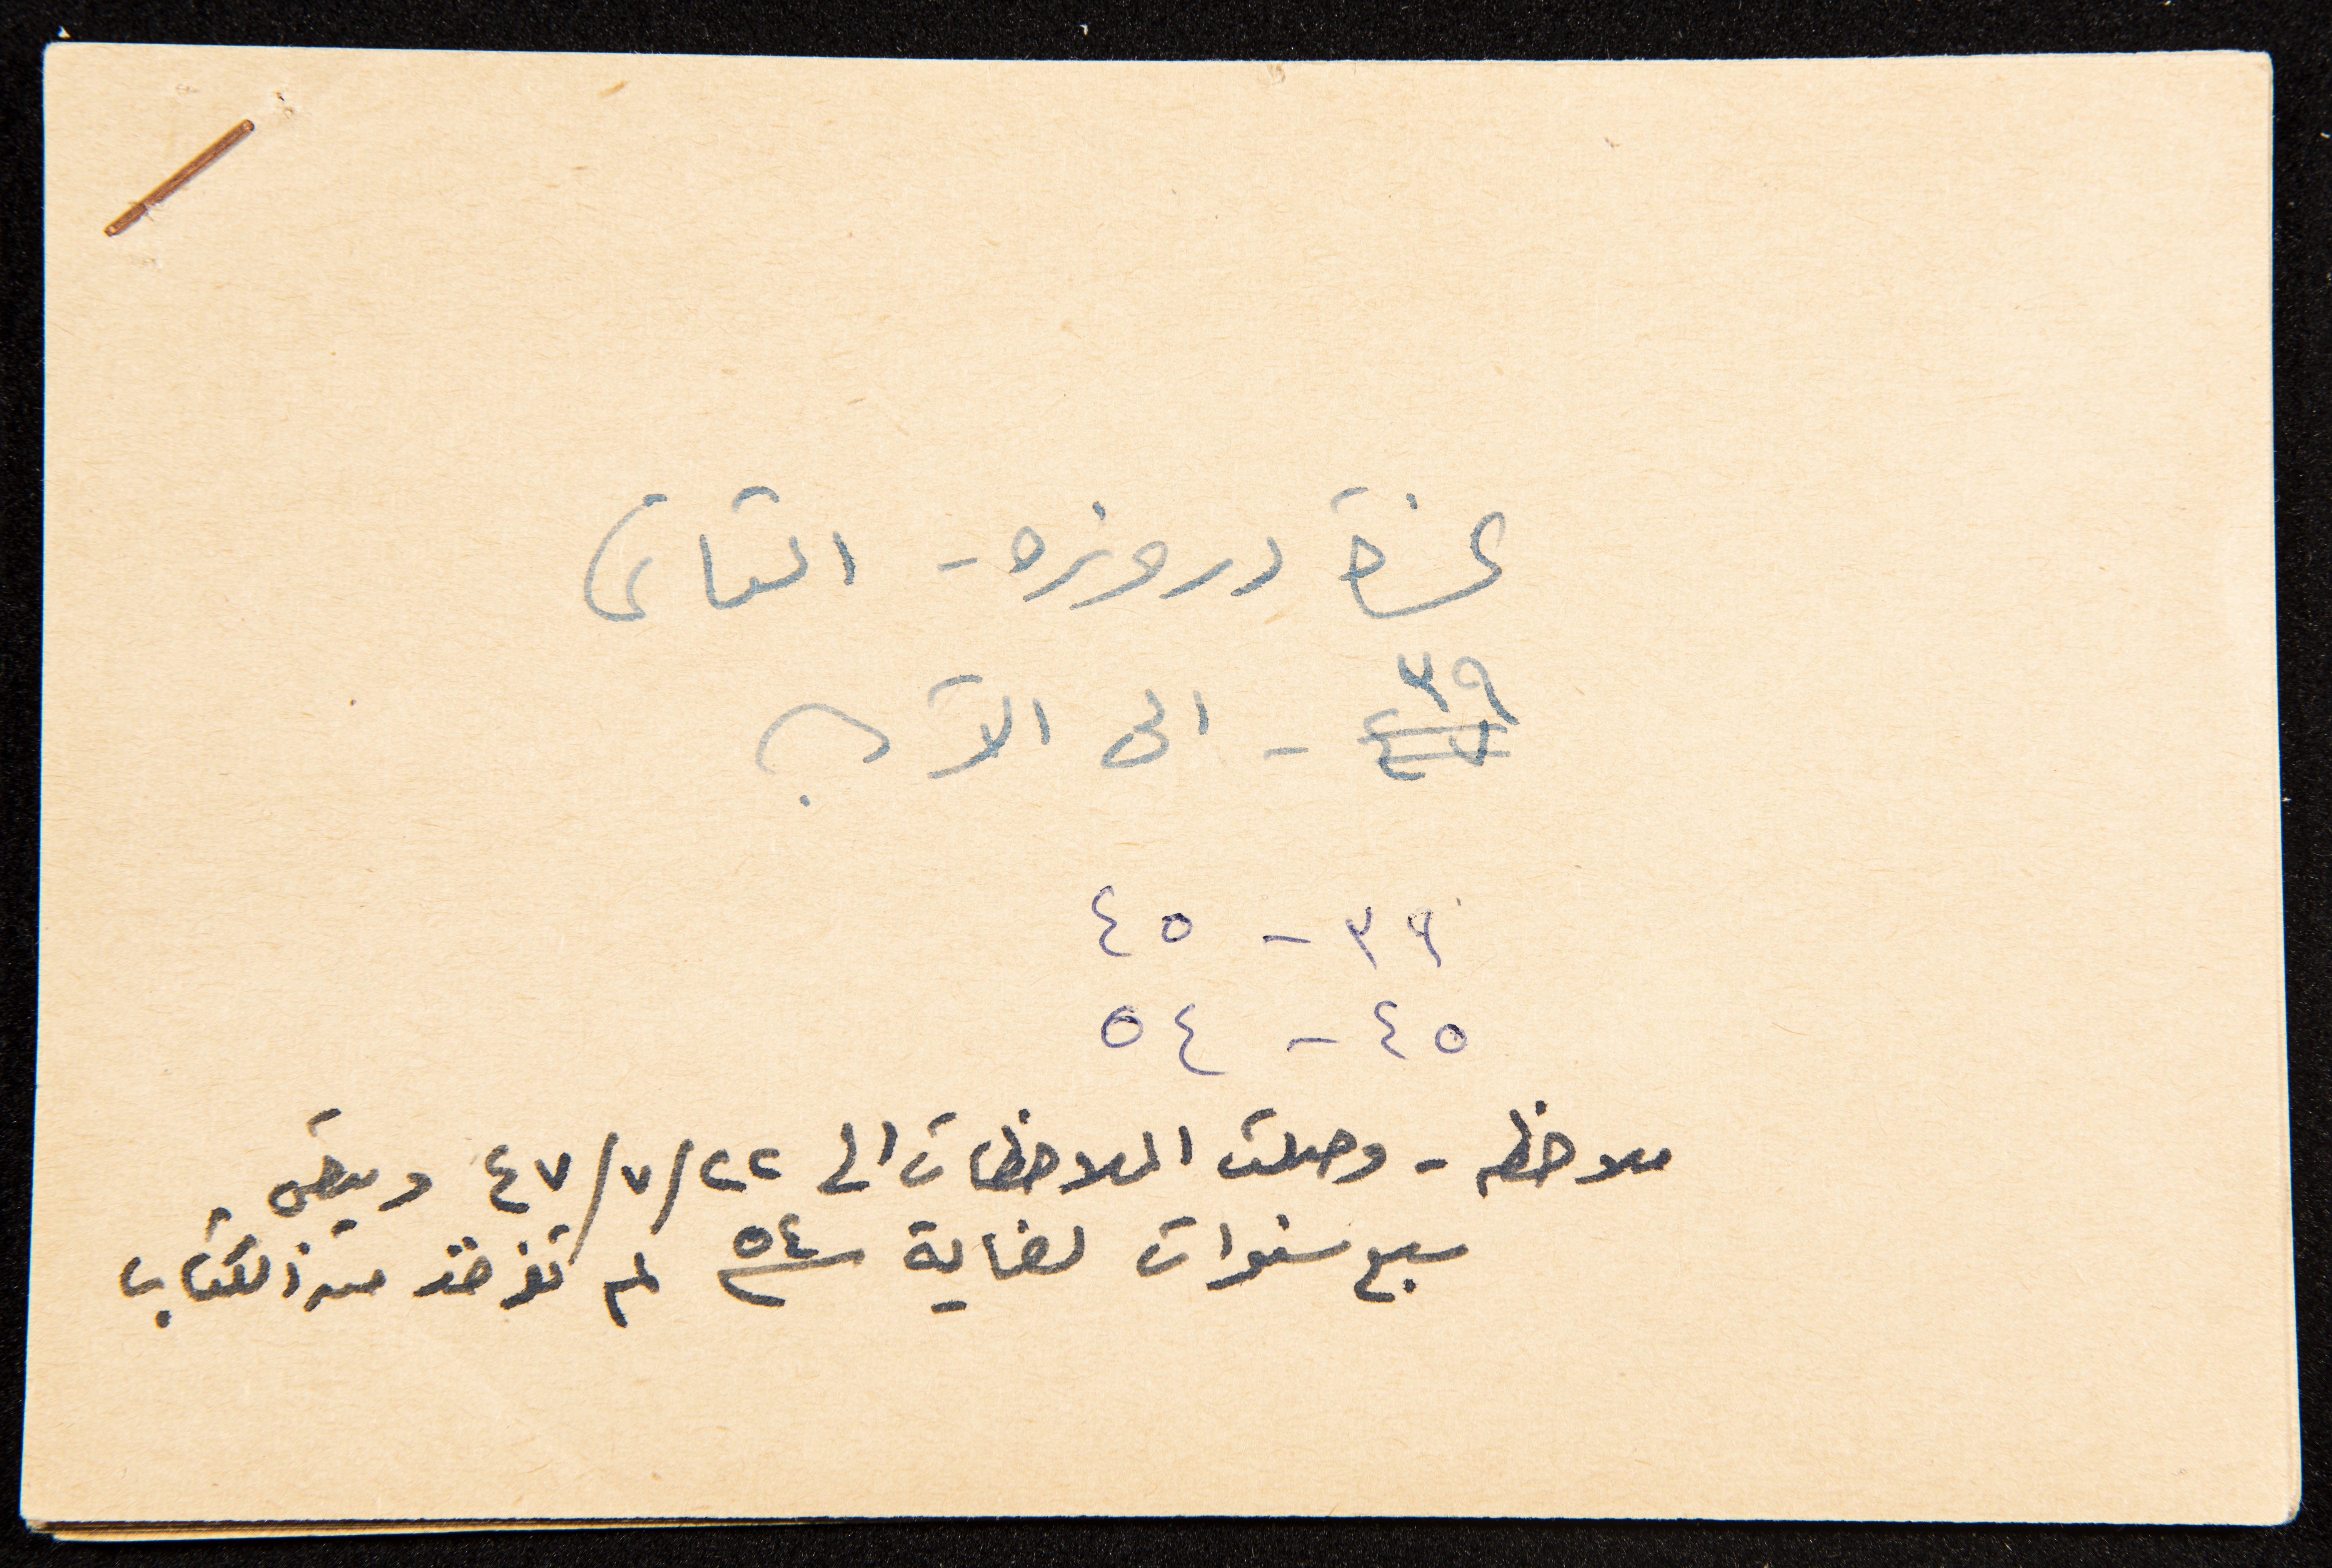 دروزه - الثاني
٣٩
- الى الآن
٣٩ - ٤٥
٤٥ - ٥٤
ملاحظه - وصلت الملاحظات الى ٢٢/٧/٤٧ ويبقى
سبع سنوات لغاية سنة ٥٤ لم تؤخذ من الكتاب